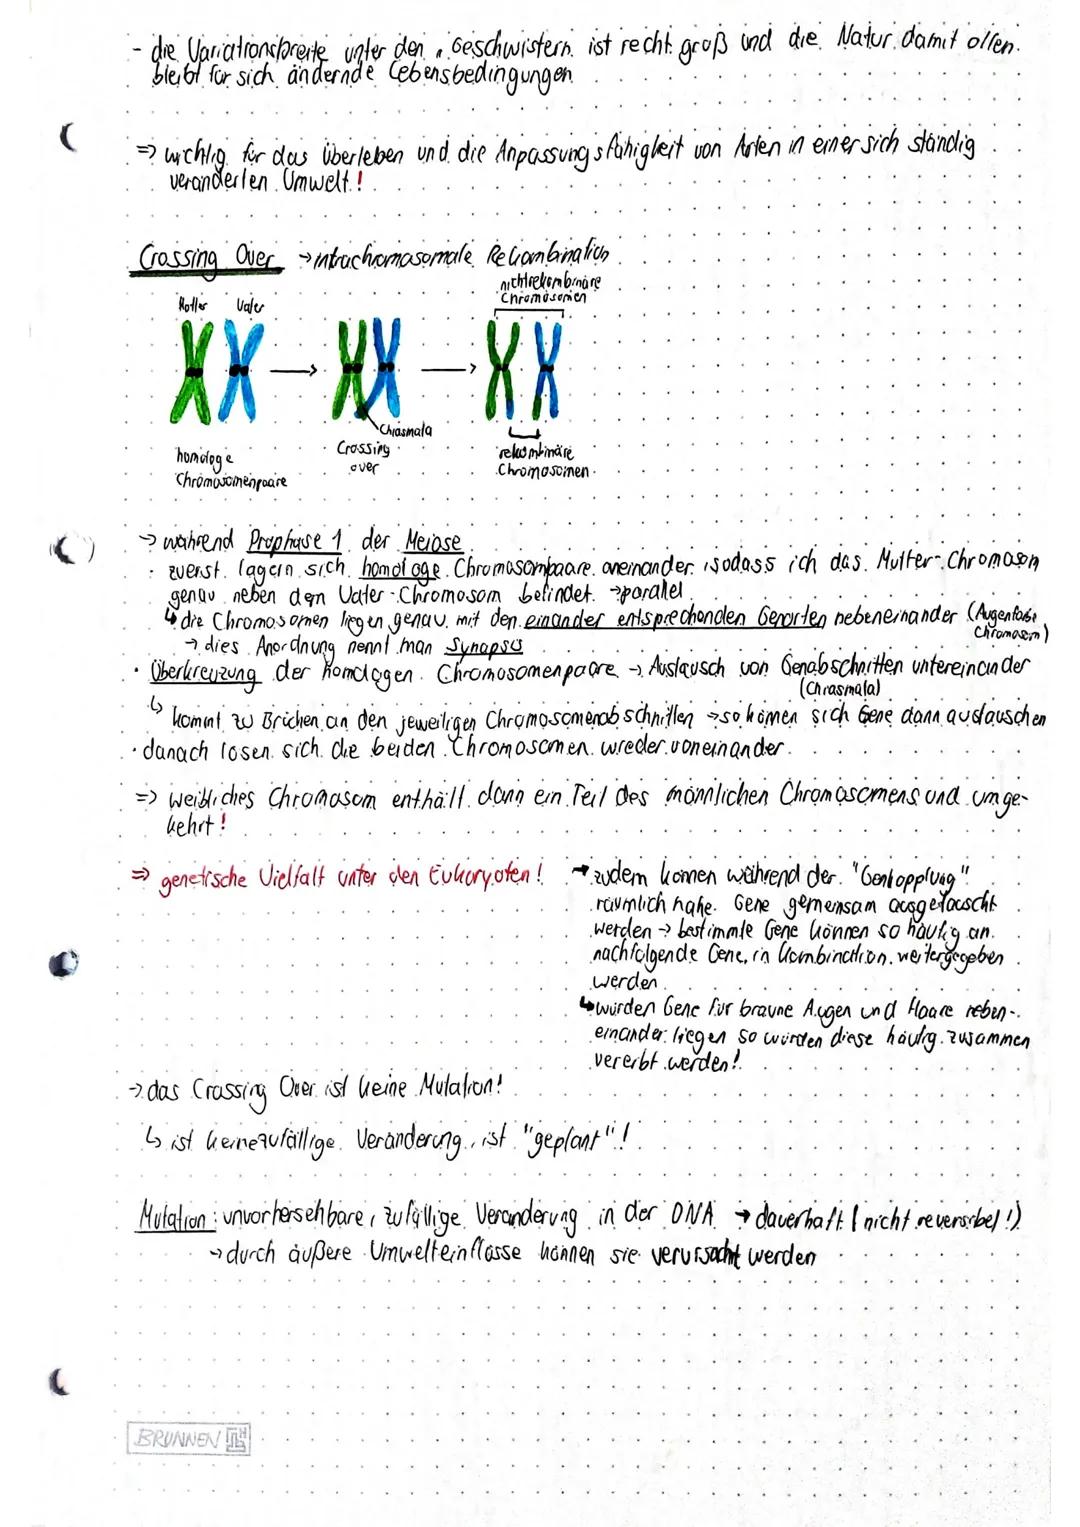 - die Variationsbreite unter den "Geschwistern" ist recht groß und die Natur damit offen
bleibt für sich ändernde Lebensbedingungen
=> wichtig für das Überleben und die Anpassungsfähigkeit von Arten in einer sich ständig
veränderten Umwelt!
Crossing Over → intrachromosomale Rekombination
nichtrekombinäre
Chromosomen
Mutter Vater
Chiasmata
homologe
Chromosomenpaare
Crossing
over
rekombinäre
Chromosomen
→ während Prophase 1 der Meiose
· zuerst lagern sich homologe Chromosompaare aneinander, sodass ich das Mutter-Chromosom
genau neben dem Vater-Chromosom befindet →parallel
↳ die Chromosomen liegen genau mit den einander entsprechenden Genorten nebeneinander (Augenfarbe
Chromosom)
→ dies Anordnung nennt man Synapsis
· Überkreuzung der homologen Chromosomenpaare → Austausch von Genabschnitten untereinander
(Chiasmata)
↳ kommt zu Brüchen an den jeweiligen Chromosomenabschnitten → so können sich Gene dann austauschen
· danach lösen sich die beiden Chromosomen wieder voneinander
=> weibliches Chromosom enthält dann ein Teil des männlichen Chromosomens und umge-
kehrt!
=> genetische Vielfalt unter den Eukaryoten!
→ zudem können während der "Genkopplung"
räumlich nahe Gene gemeinsam ausgetauscht
werden → bestimmte Gene können so häufig an
nachfolgende Gene, in Kombination weitergegeben
werden
↳ würden Gene für braune Augen und Haare neben-
einander liegen so würden diese häufig zusammen
vererbt werden!
→ das Crossing Over ist keine Mutation!
↳ ist keine zufällige Veränderung, ist "geplant"!
Mutation: unvorhersehbare, zufällige Veränderung in der DNA → dauerhaft (nicht reversibel!)
→ durch äußere Umwelteinflüsse können sie verursacht werden
BRUNNEN